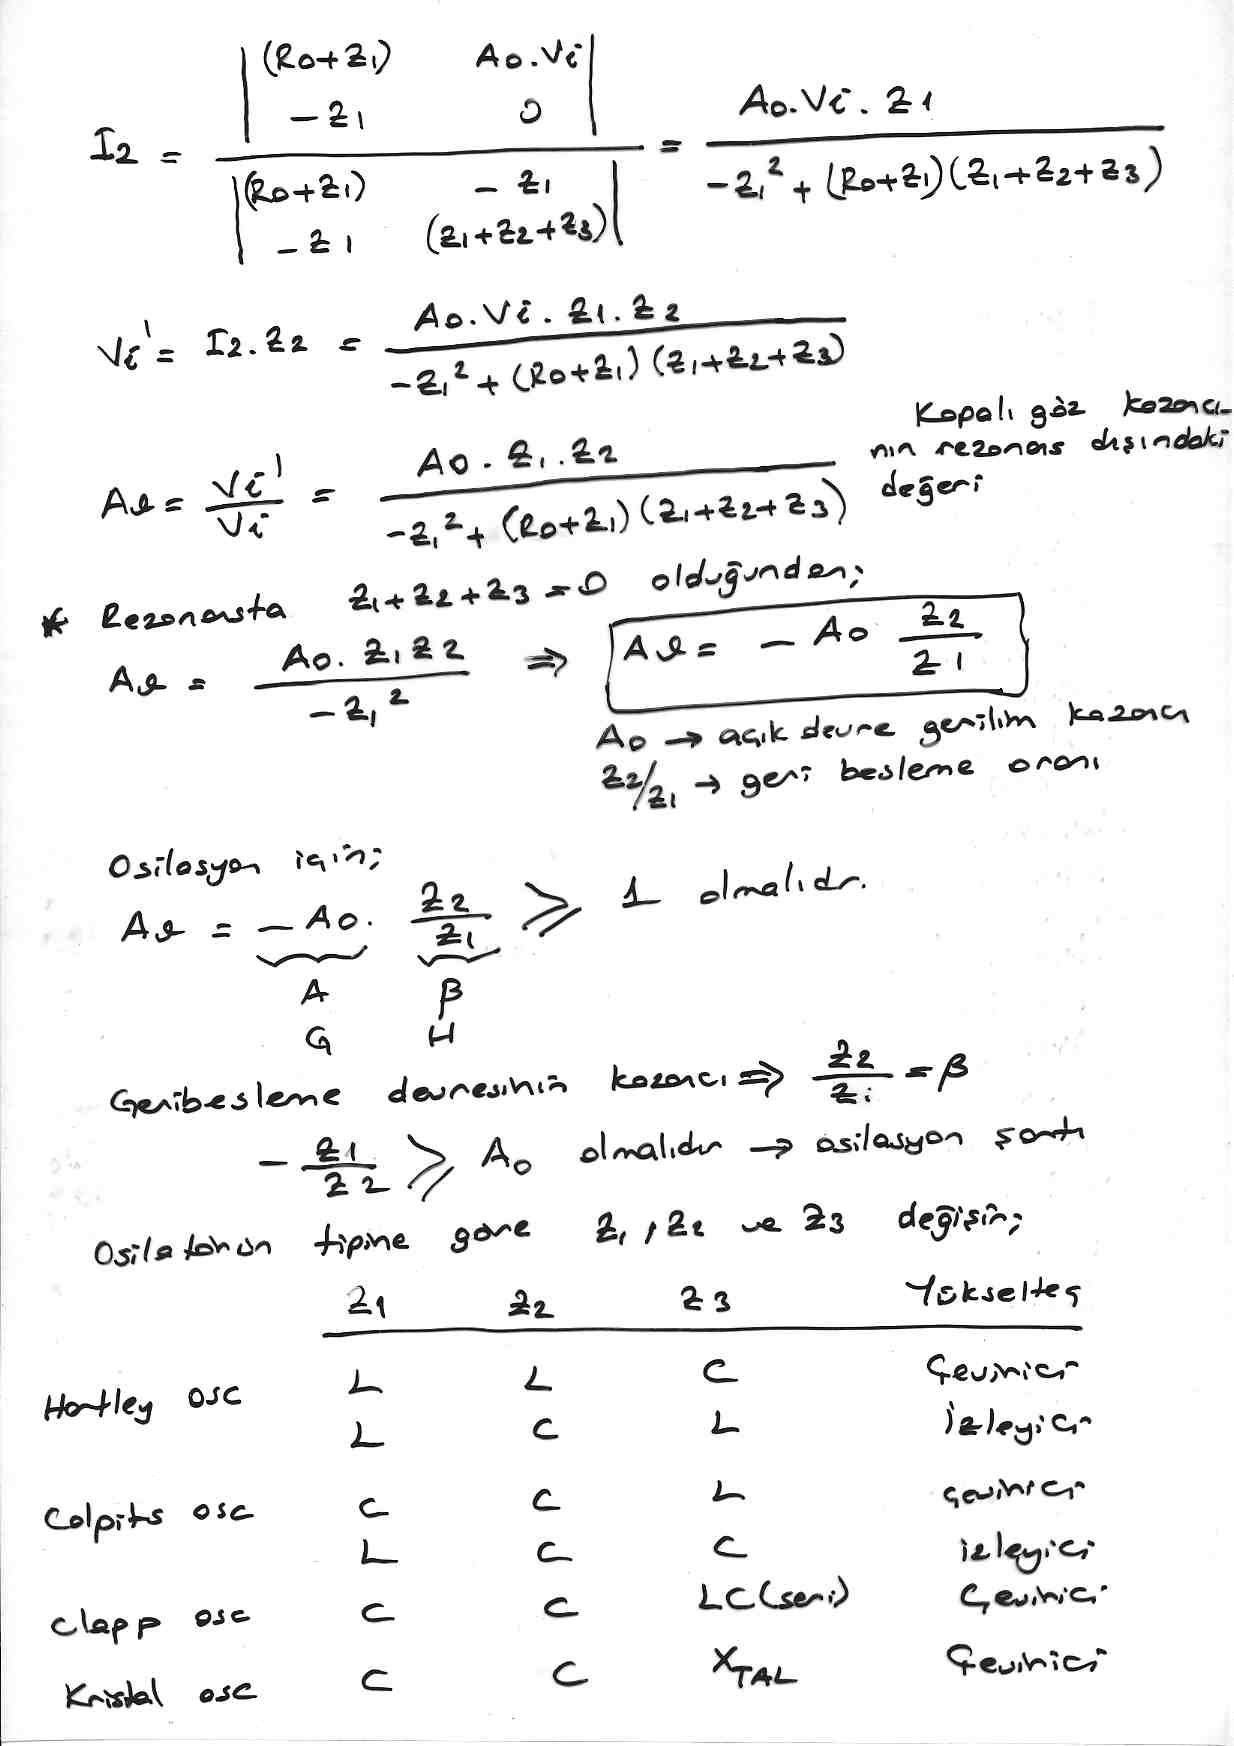 I2 = |(Ro+Z1) Ao.Vi; -Z1 0| / |(Ro+Z1) -Z1; -Z1 (Z1+Z2+Z3)| = Ao.Vi.Z1 / (-Z1² + (Ro+Z1)(Z1+Z2+Z3))
Vi' = I2.Z2 = Ao.Vi.Z1.Z2 / (-Z1² + (Ro+Z1)(Z1+Z2+Z3))
Al = Vi'/Vi = Ao.Z1.Z2 / (-Z1² + (Ro+Z1)(Z1+Z2+Z3))
Kapalı göz kazancı-
nın rezonans dışındaki
değeri
* Rezonansta Z1+Z2+Z3=0 olduğundan;
Al = Ao.Z1Z2 / -Z1² ⇒ Al = - Ao Z2/Z1
Ao → açık devre gerilim kazancı
Z2/Z1 → geri besleme oranı
Osilasyon için;
Al = -Ao. Z2/Z1 ⩾ 1 olmalıdır.
A β
G H
Geribesleme devresinin kazancı ⇒ Z2/Zi = β
- Z1/Z2 ⩾ Ao olmalıdır → osilasyon şartı
Osilatörün tipine göre Z1, Z2 ve Z3 değişir;
Z1 Z2 Z3 Yükselteç
Hartley osc L L C Çevirici
L C L İzleyici
Colpits osc C C L Çevirici
L C C izleyici
Clapp osc C C LC(seri) Çevirici
Kristal osc C C XTAL Çevirici